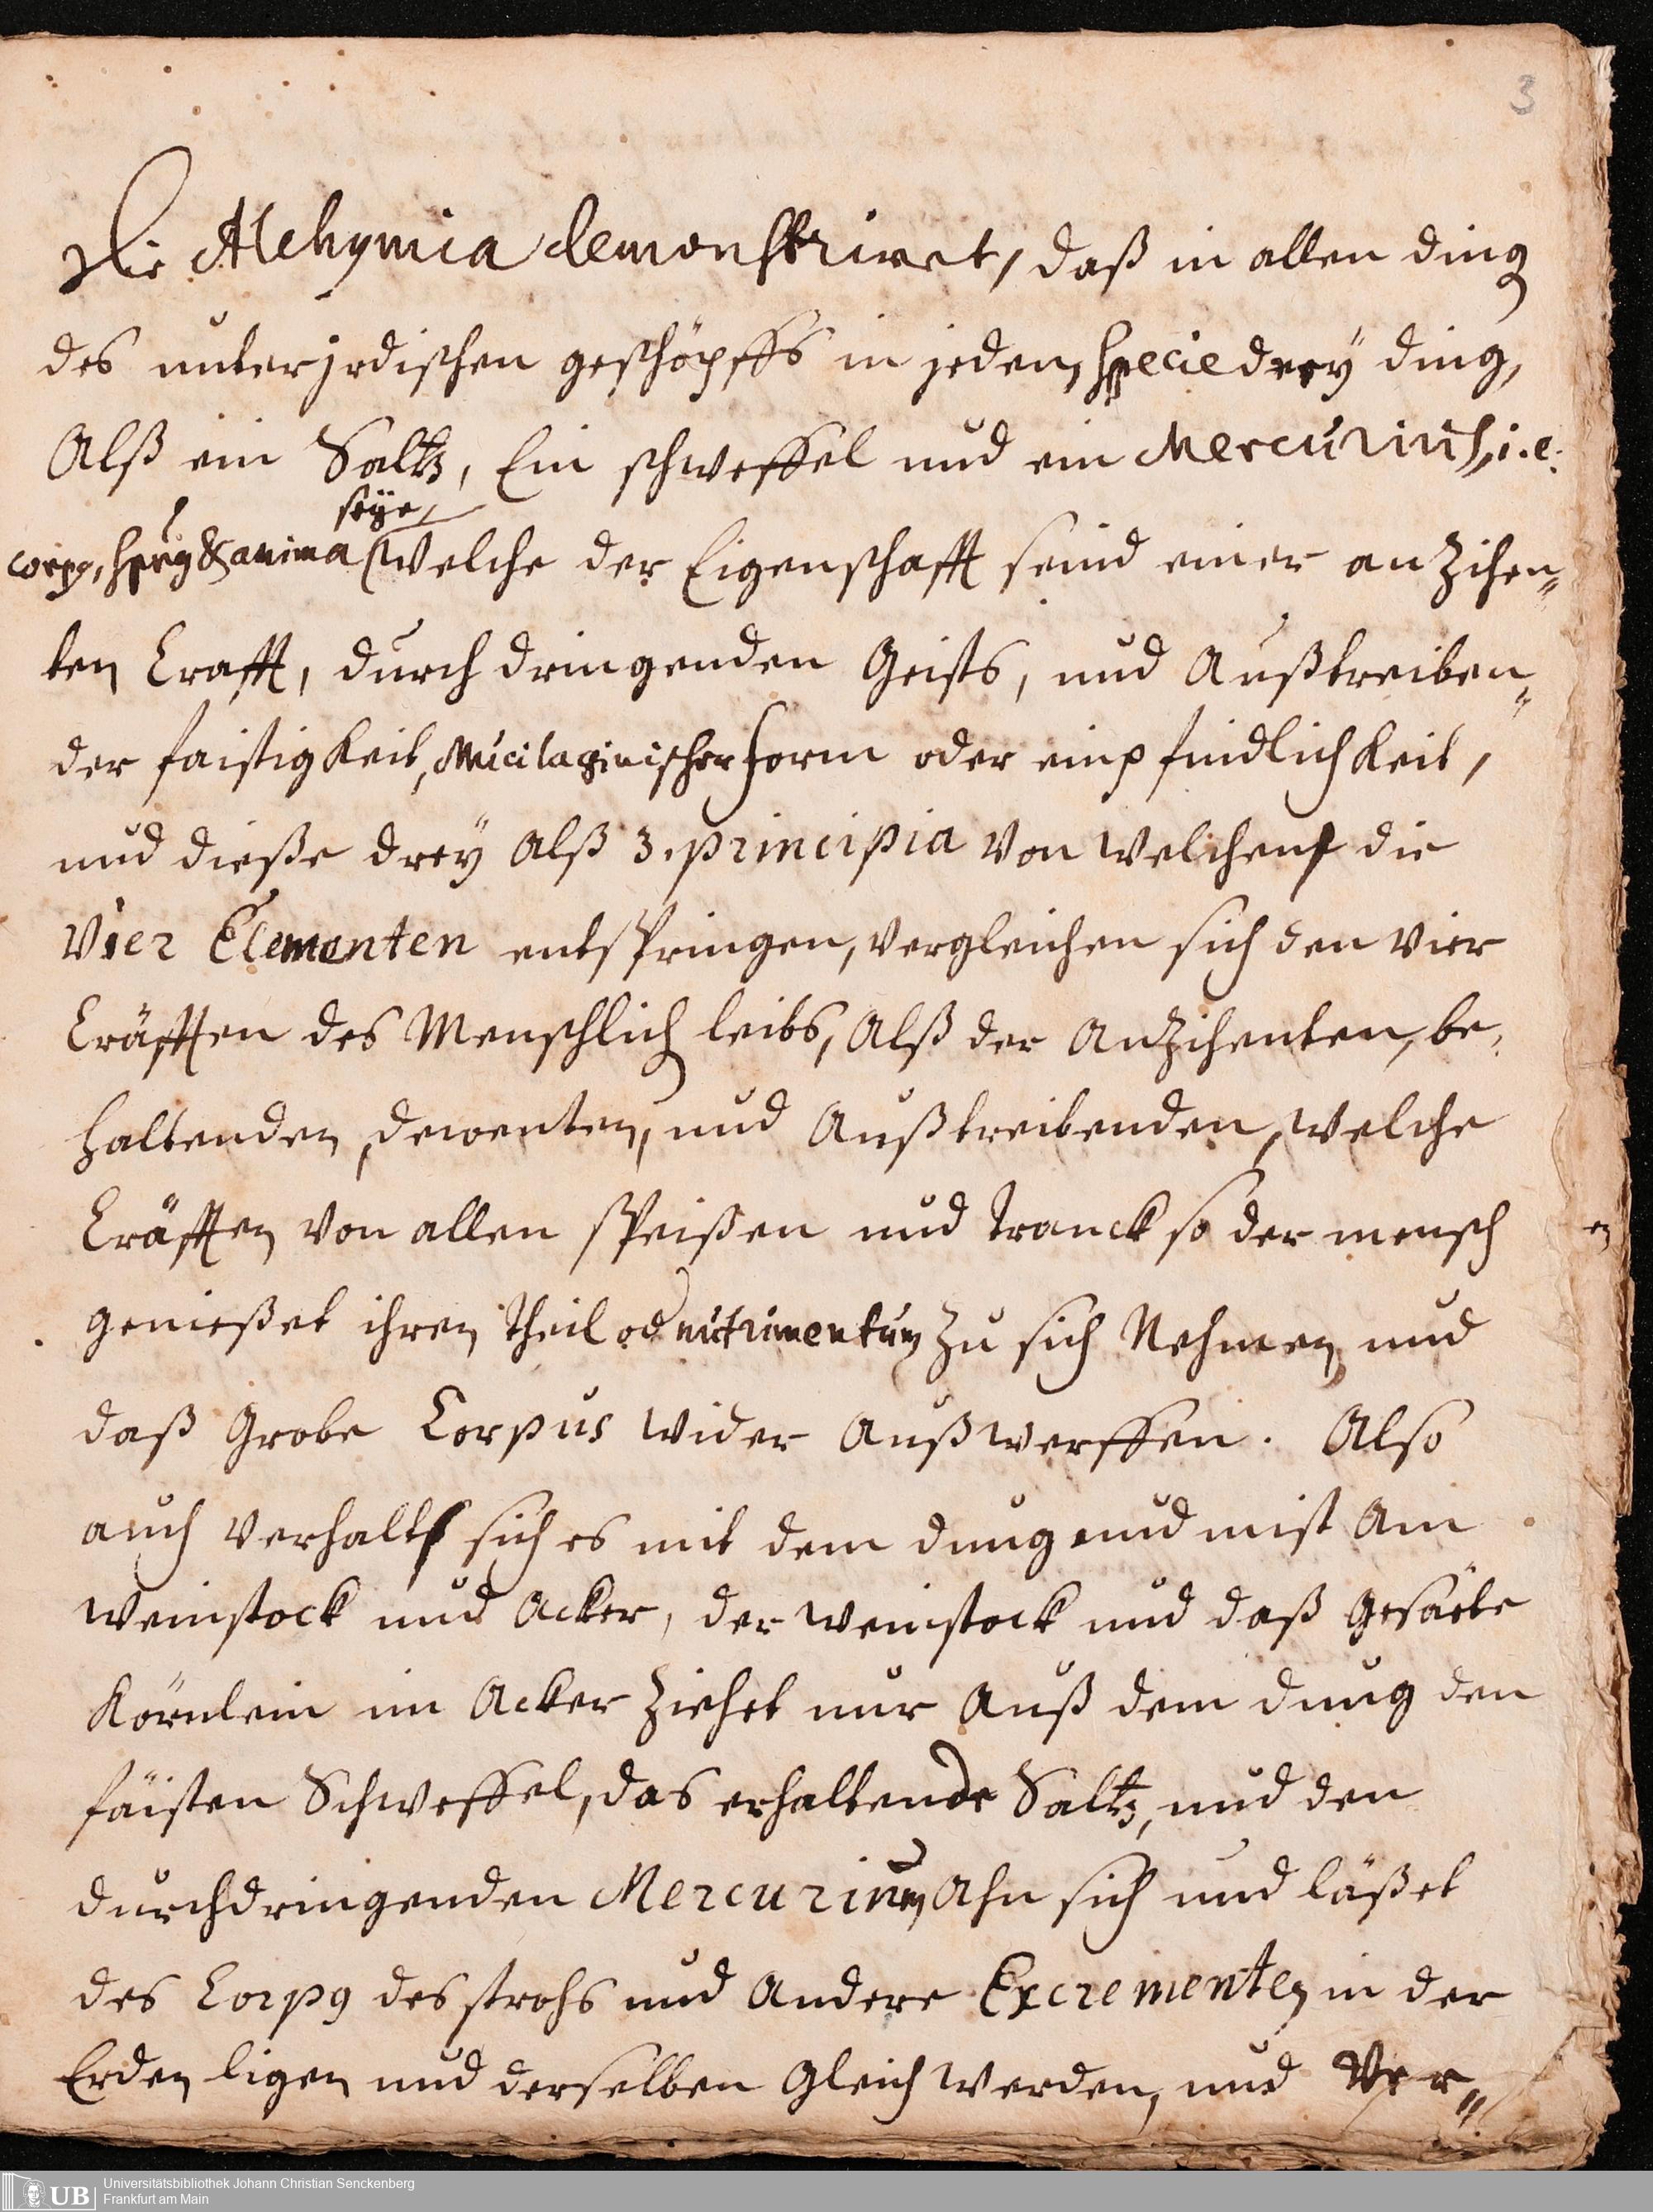 3
Die Alchymia demonstriret, daß in allen ding
des unterjrdischen geschöpffs in jeden specie drey ding,
Alß ein Saltz, Ein schweffel und ein Mercurius, i.e.
seye,
corpg, & anima (welche der Eigenschafft seind einer anzihen„
ten Crafft, durch dringenden Geists, und Außtreiben„
der faistigkeit, Mucilaginischer form oder empfindlichkeit,
und dieße drey Alß 3. principia von welchen die
Vier Elementen entspringen, vergleichen sich den vier
Cräfften des Menschlich leibs, Alß der Anzihenten, be„
haltenden, dewenten, und Außtreibenden, welche
Cräfften von allen speißen und tranck so der mensch
genießet ihren theil od nutrimentum zu sich Nehmen, und
daß Grobe Corpus wider Außwerffen. Also
auch verhallt sich es mit dem dung und mist Am
weinstock und Acker, der weinstock und daß Gesäete
Körnlein im Acker ziehet nur Auß dem dung den
fäisten Schweffel, das erhaltende Saltz, und den
durchdringenden Mercurium Ahn sich und läßet
des Corpg des strohs und Andere Excrementen in der
Erden ligen und derselben Gleich werden, und Ver„
UB
Universitätsbibliothek Johann Christian Senckenberg
Frankfurt am Main